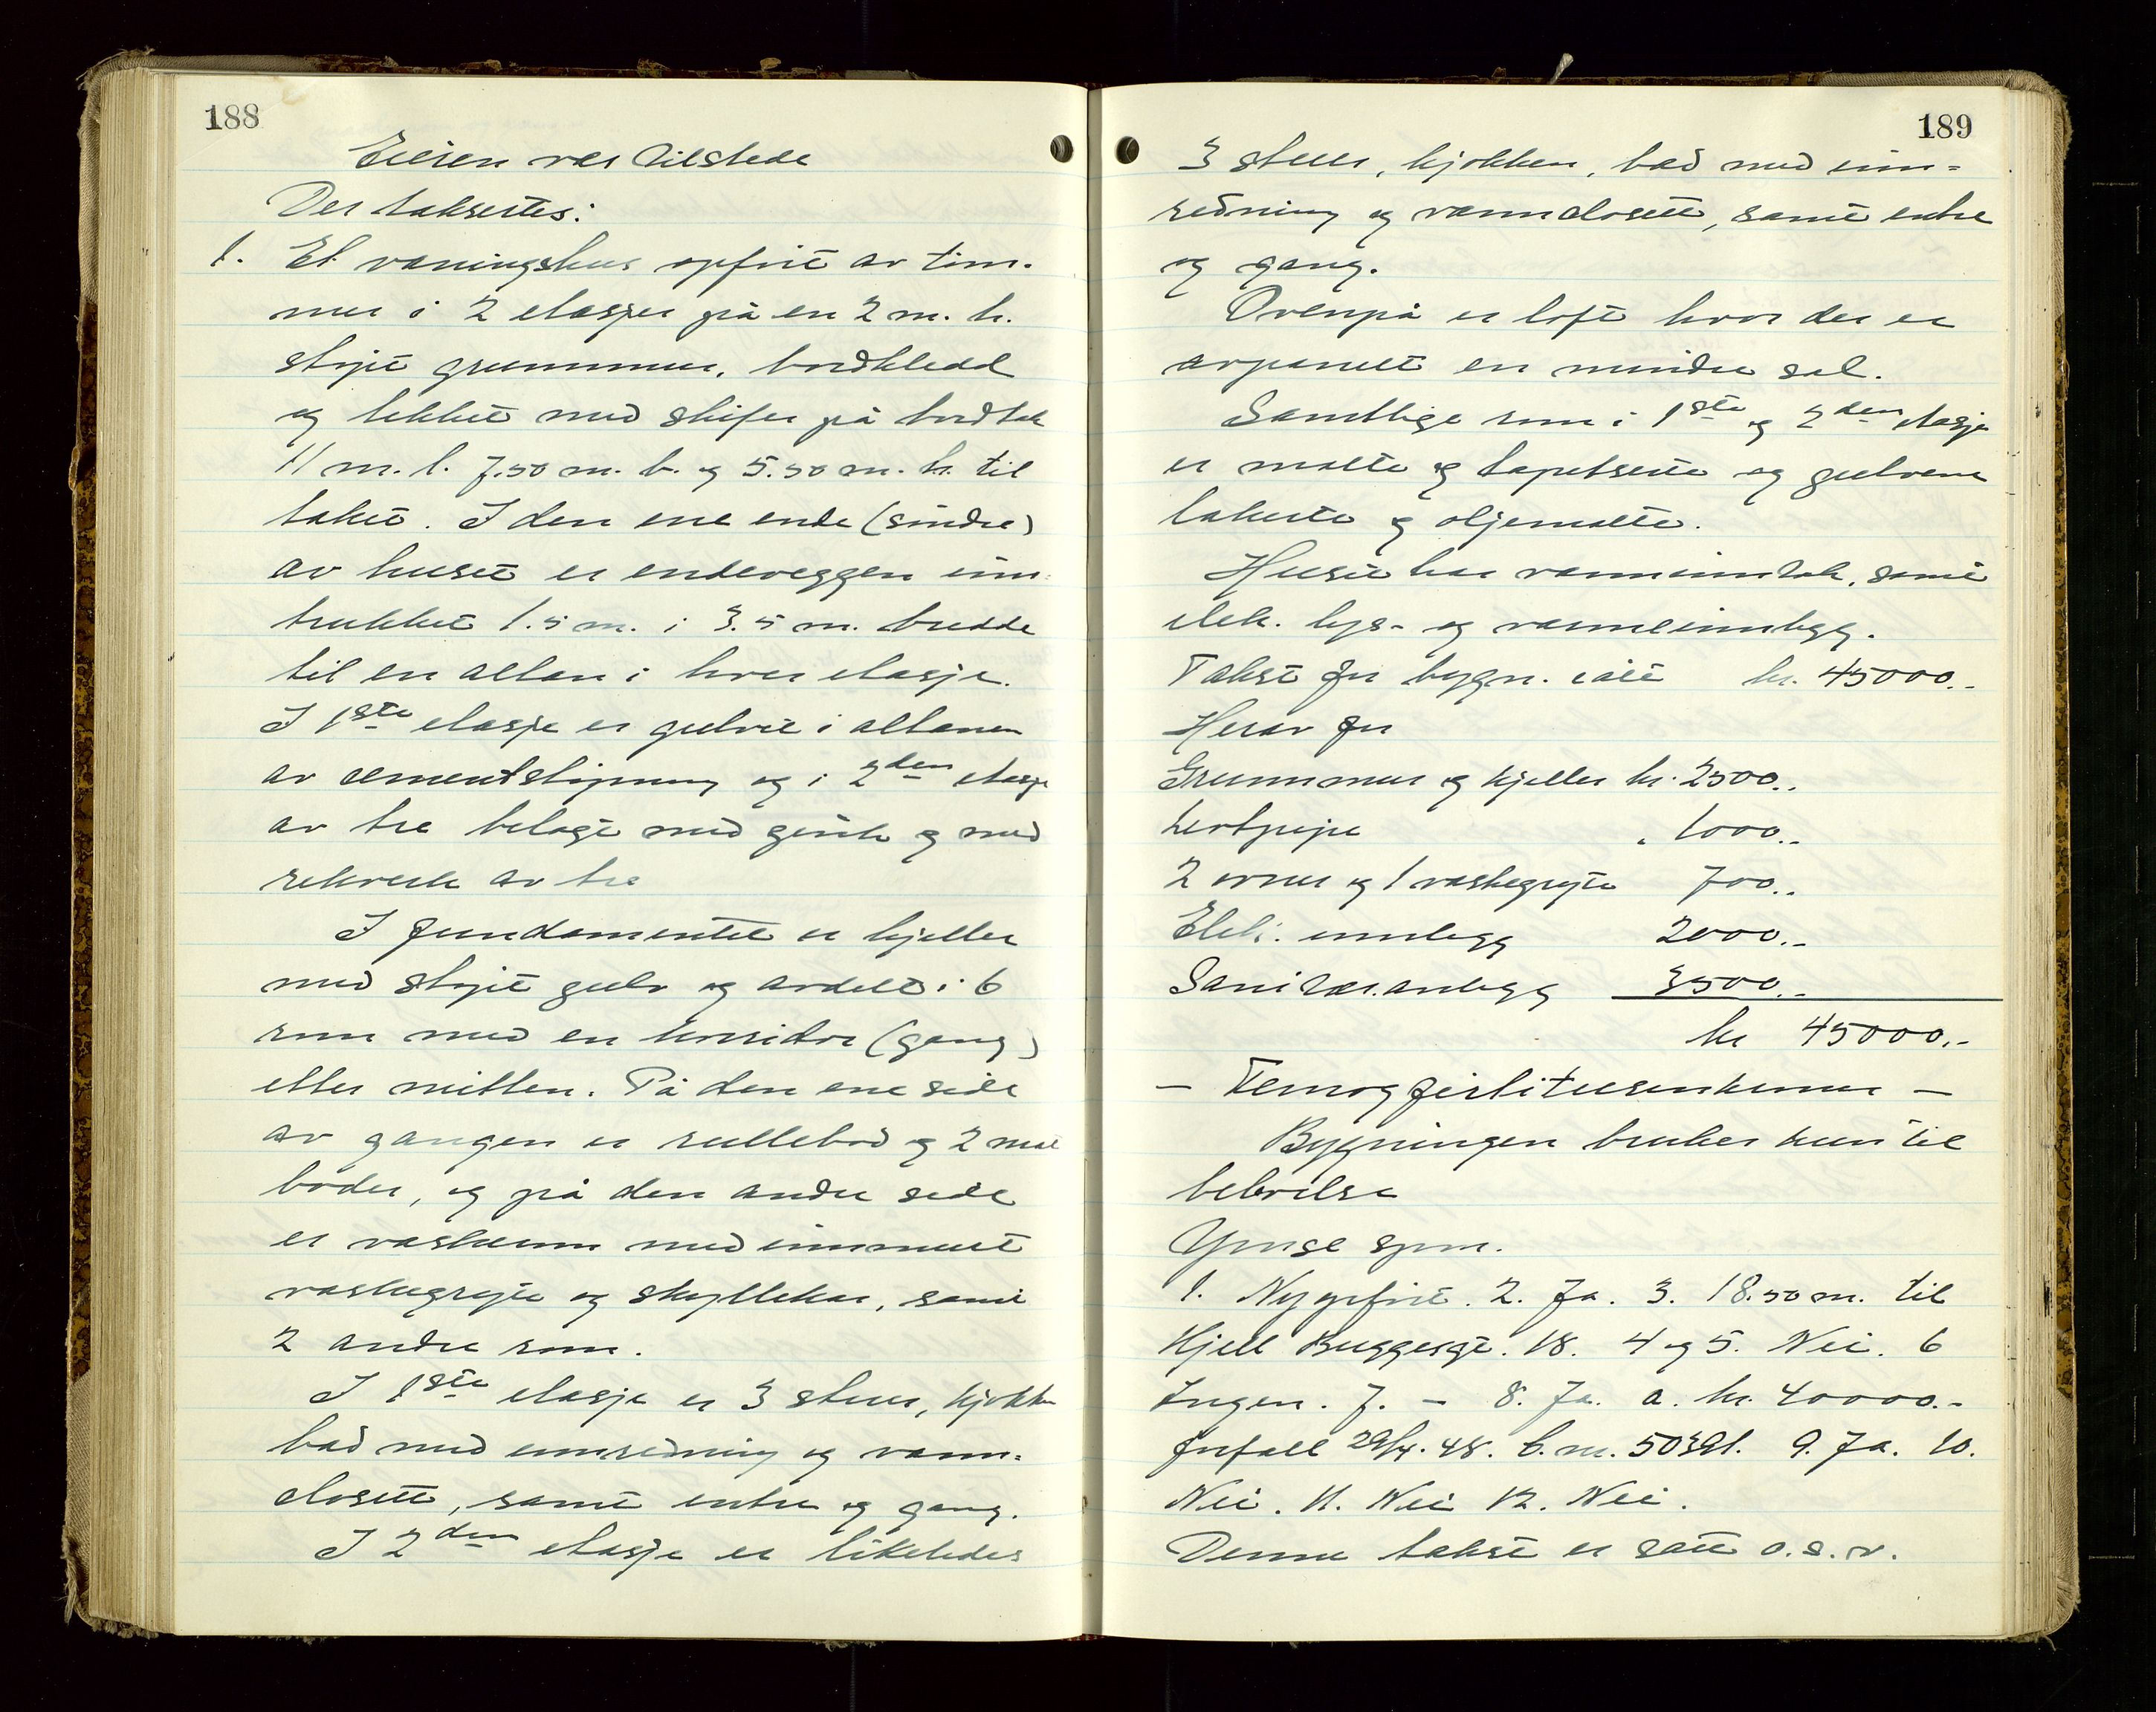 188
Eieren var tilstede
Der takseres:
1. Et vaningshus opført av tøm-
mer i 2 etasjer på en 2 m. h.
støpt grunnmur, bordkledd
og tekket med skifer på bordtak
11 m. l. 7.50 m. b. og 5.50 m. h. til
taket. I den ene ende (søndre)
av huset er endeveggen inn-
trukket 1.5 m. i 3.5 m. bredde
til en altan i hver etasje.
I 1ste etasje er gulvet i altanen
av cementstøpning og i 2den etasje
av tre belagt med zink og med
rekverk av tre
I fundamentet er kjeller
med støpt gulv og avdelt i 6
rum med en korridor (gang)
etter midten. På den ene side
av gangen er rullebod og 2 mat
boder, og på den andre side
er vaskerum med innmurt
vaskegryte og skyllekar, samt
2 andre rom.
I 1ste etasje er 3 stuer, kjøkken
bad med innredning og vann-
closett, samt entre og gang.
I 2den etasje er likeledes
189
3 stuer, kjøkken, bad med inn-
redning og vannclosett, samt entre
og gang.
Ovenpå er loft hvor der er
avpanelt en mindre sal.
Samtlige rum i 1ste og 2den etasje
er malte og tapetserte og gulvene
lakerte og oljemalte.
Huset har vanninntak, samt
elek. lys- og varmeinnlegg.
Takst for bygn. ialt kr. 45000.-
Herav for
Grunnmur og kjeller kr. 2500.-
Lertpipe " 1000.-
2 ovner og 1 vaskegryte 700.-
Elek. innlegg 2000.-
Sanitær.anlegg 3500.-
kr 45000.-
- Femogførtitusenkroner -
Bygningen brukes kun til
beboelse
Ymse spm.
1. Nyopført. 2. Ja. 3. 18.50 m. til
Kjell Buggesgt. 18. 4 og 5. Nei. 6
Ingen. 7. - 8. Ja. a. kr. 40000.-
forfall 29/4. 48. b. nr. 50391. 9. Ja. 10.
Nei. 11. Nei 12. Nei.
Denne takst er satt o.s.v.